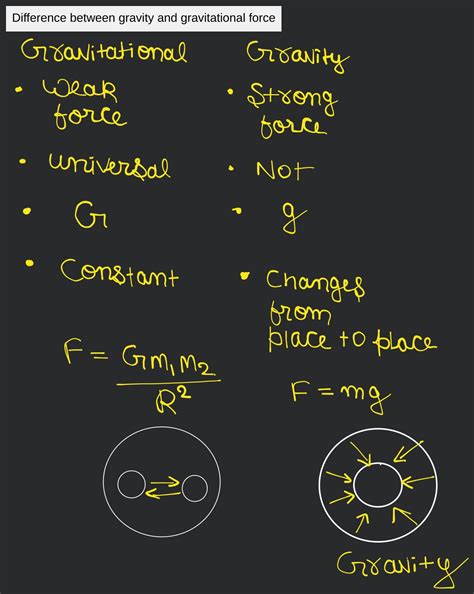 Difference between gravity and gravitational force
Gravitational
Gravity
• Weak
force
• Strong
force
• universal
• Not
• G
• g
• Constant
• Changes
from
place to place
F = Gm₁m₂
R²
F = mg
Gravity